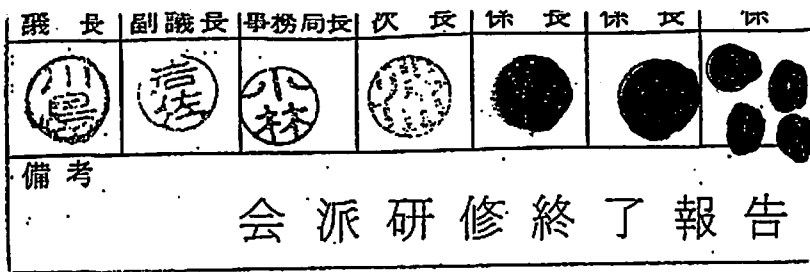 議長 副議長 事務局長 次長 係長 係長 係
川島 岩佐 小林
備考
会派研修終了報告